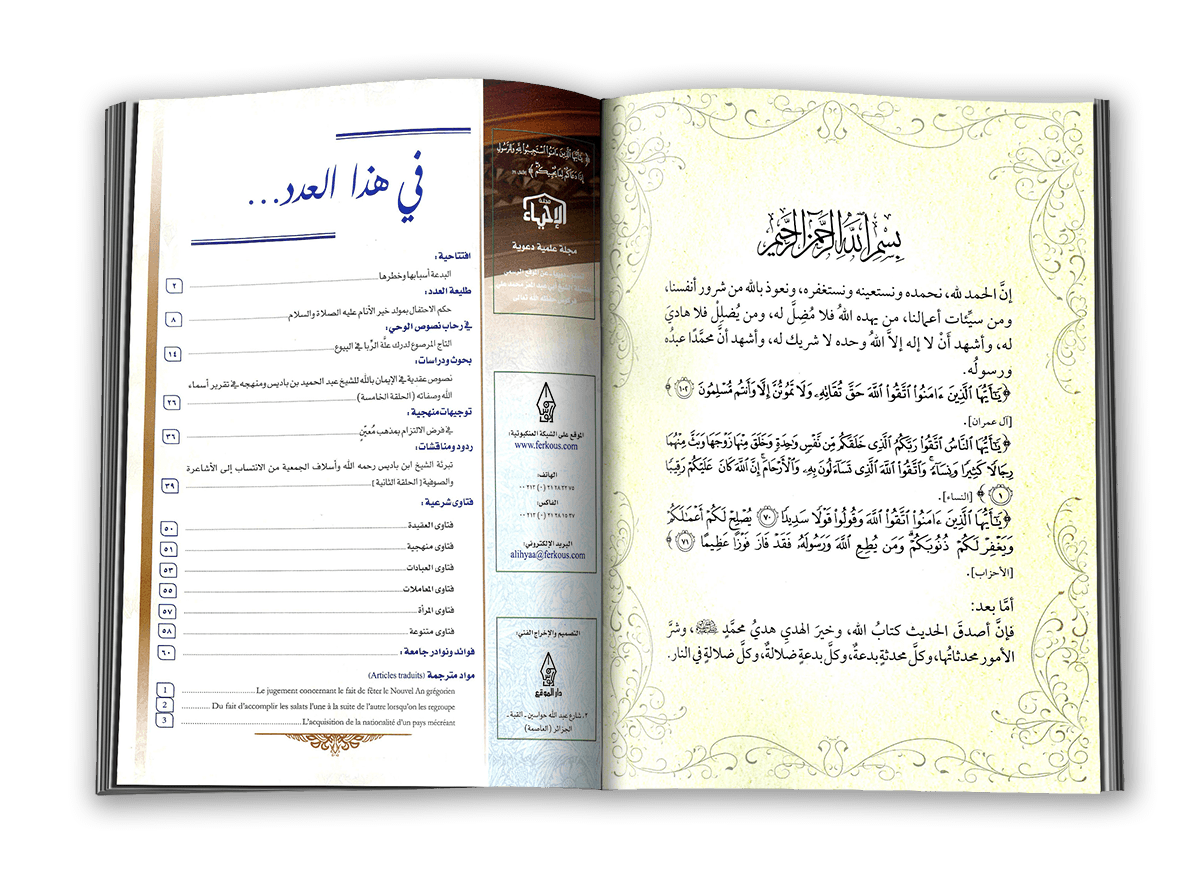 بِسْمِ ٱللَّهِ ٱلرَّحْمَٰنِ ٱلرَّحِيمِ
إنَّ الحمد لله، نحمده ونستعينه ونستغفره، ونعوذ بالله من شرور أنفسنا،
ومن سيِّئات أعمالنا، من يهده اللهُ فلا مُضِلَّ له، ومن يُضلِلْ فلا هاديَ
له، وأشهد أَنْ لا إله إلاَّ اللهُ وحده لا شريك له، وأشهد أنَّ محمَّدًا عبدُه
ورسولُه.
﴿يَٰٓأَيُّهَا ٱلَّذِينَ ءَامَنُوا۟ ٱتَّقُوا۟ ٱللَّهَ حَقَّ تُقَاتِهِۦ وَلَا تَمُوتُنَّ إِلَّا وَأَنتُم مُّسْلِمُونَ ١٠٢﴾
[آل عمران].
﴿يَٰٓأَيُّهَا ٱلنَّاسُ ٱتَّقُوا۟ رَبَّكُمُ ٱلَّذِى خَلَقَكُم مِّن نَّفْسٍ وَٰحِدَةٍ وَخَلَقَ مِنْهَا زَوْجَهَا وَبَثَّ مِنْهُمَا
رِجَالًا كَثِيرًا وَنِسَآءً ۚ وَٱتَّقُوا۟ ٱللَّهَ ٱلَّذِى تَسَآءَلُونَ بِهِۦ وَٱلْأَرْحَامَ ۚ إِنَّ ٱللَّهَ كَانَ عَلَيْكُمْ رَقِيبًا
١﴾ [النساء].
﴿يَٰٓأَيُّهَا ٱلَّذِينَ ءَامَنُوا۟ ٱتَّقُوا۟ ٱللَّهَ وَقُولُوا۟ قَوْلًا سَدِيدًا ٧٠ يُصْلِحْ لَكُمْ أَعْمَٰلَكُمْ
وَيَغْفِرْ لَكُمْ ذُنُوبَكُمْ ۗ وَمَن يُطِعِ ٱللَّهَ وَرَسُولَهُۥ فَقَدْ فَازَ فَوْزًا عَظِيمًا ٧١﴾
[الأحزاب].
أمَّا بعد:
فإنَّ أصدقَ الحديث كتابُ الله، وخيرَ الهديِ هديُ محمَّدٍ ﷺ، وشرَّ
الأمور محدثاتُها، وكلَّ محدثةٍ بدعةٌ، وكلَّ بدعةٍ ضلالةٌ، وكلَّ ضلالةٍ في النار.
﴿ يَٰٓأَيُّهَا ٱلَّذِينَ ءَامَنُوا۟ ٱسْتَجِيبُوا۟ لِلَّهِ وَلِلرَّسُولِ
إِذَا دَعَاكُمْ لِمَا يُحْيِيكُمْ ﴾
مجلة
الإحياء
مجلة علمية دعوية
الموقع على الشبكة العنكبوتية:
www.ferkous.com
الهاتف:
٠٠ ٢١٣ (٠) ٢١ ٢٨ ٣٢ ٧٥
الفاكس:
٠٠ ٢١٣ (٠) ٢١ ٢٨ ١٥ ٣٧
البريد الإلكتروني:
alihyaa@ferkous.com
التصميم والإخراج الفني:
دار الموقع
٢ـ شارع عبد الله حواسين ـ القبة ـ
الجزائر (العاصمة)
في هذا العدد...
افتتاحية:
البدعة أسبابها وخطرها ٢
طليعة العدد:
حكم الاحتفال بمولد خير الأنام عليه الصلاة والسلام ٨
في رحاب نصوص الوحي:
التاج المرصوع لدرك علَّة الرِّبا في البيوع ١٤
بحوث ودراسات:
نصوص عقدية في الإيمان بالله للشيخ عبد الحميد بن باديس ومنهجه في تقرير أسماء
الله وصفاته (الحلقة الخامسة) ٢٦
توجيهات منهجية:
في فرض الالتزام بمذهب مُعيَّنٍ ٣٦
ردود ومناقشات:
تبرئة الشيخ ابن باديس رحمه الله وأسلاف الجمعية من الانتساب إلى الأشاعرة
والصوفية [الحلقة الثانية] ٣٩
فتاوى شرعية:
فتاوى العقيدة ٥٠
فتاوى منهجية ٥١
فتاوى العبادات ٥٣
فتاوى المعاملات ٥٥
فتاوى المرأة ٥٧
فتاوى متنوعة ٥٨
فوائد ونوادر جامعة: ٦٠
مواد مترجمة (Articles traduits)
1 Le jugement concernant le fait de fêter le Nouvel An grégorien
2 Du fait d'accomplir les salats l'une à la suite de l'autre lorsqu'on les regroupe
3 L'acquisition de la nationalité d'un pays mécréant